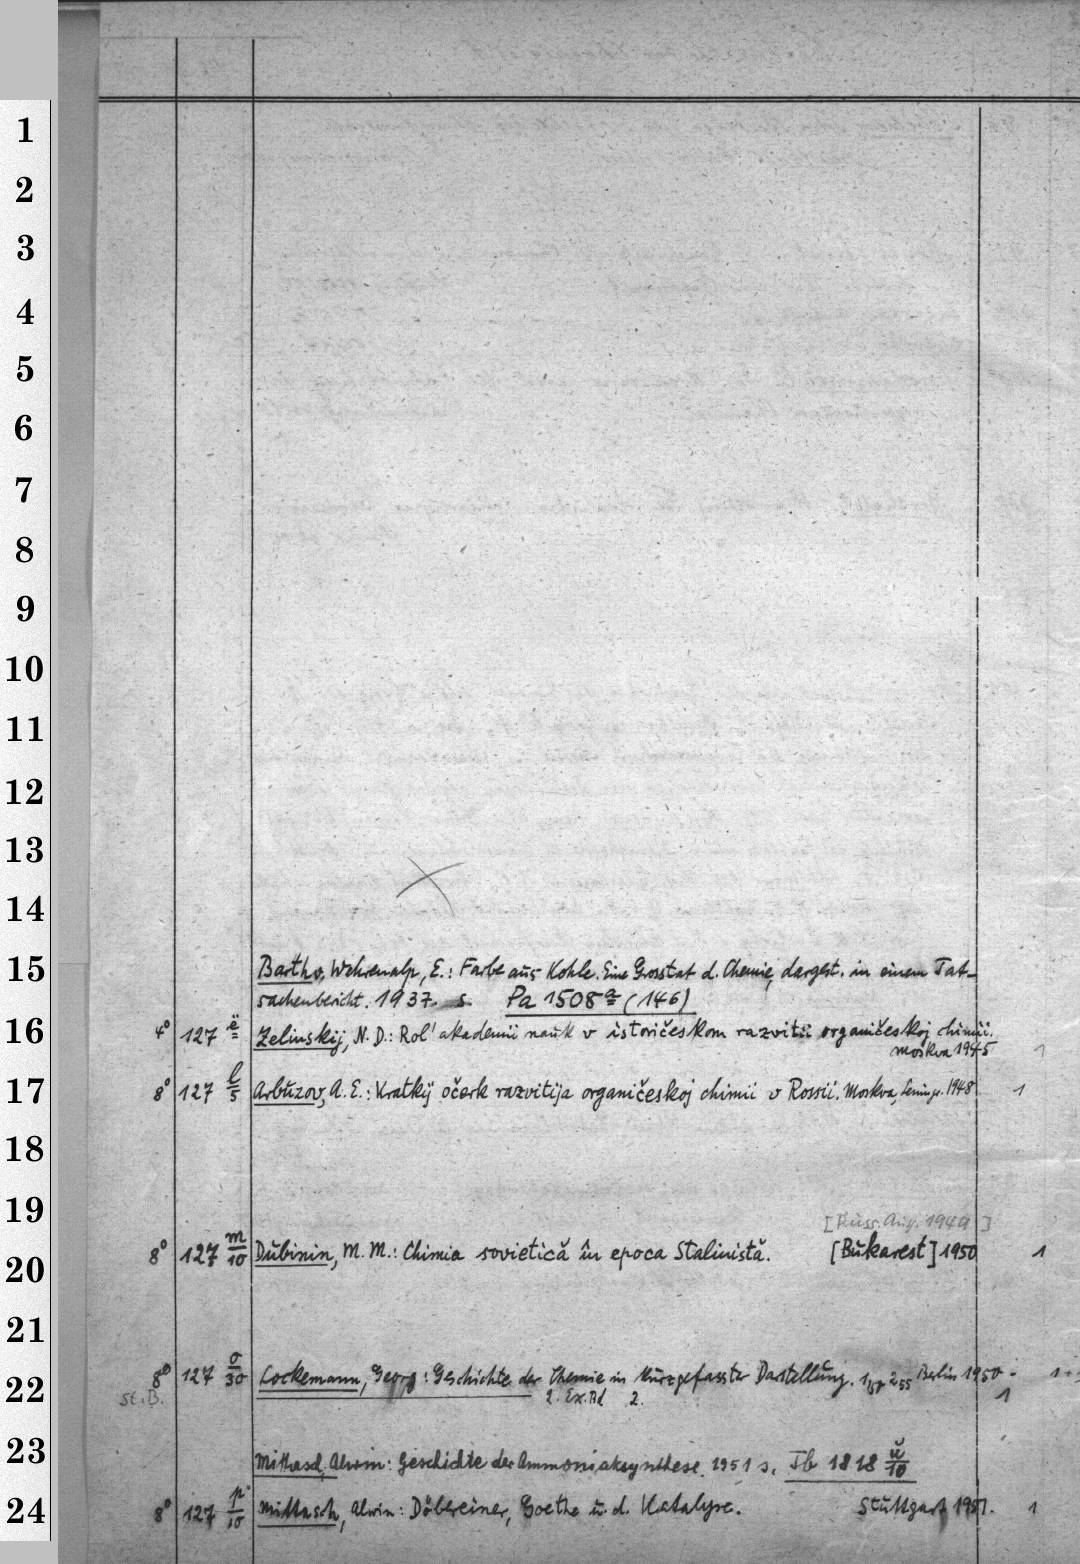 1
2
3
4
5
6
7
8
9
10
11
12
13
14
15 Barth v. Wehrenalp, E.: Farbe aus Kohle. Eine Grosstat d. Chemie, dargest. in einem Tat-
sachenbericht. 1937. s. Pa 1508 a (146)
16 4° 127 ë Zelinskij, N. D.: Rol' akademii nauk v istoričeskom razvitii organičeskoj chimii.
Moskva 1945 1
17 8° 127 l/5 Arbuzov, A. E.: Kratkij očerk razvitija organičeskoj chimii v Rossii. Moskva, Leningr. 1948 1
18
19
[Russ. Ausg. 1949]
20 8° 127 m/10 Dubinin, M. M.: Chimia sovietică în epoca Stalinistă. [Bukarest] 1950 1
21
22 8° 127 o/30 Lockemann, Georg: Geschichte der Chemie in kurzgefasster Darstellung. 1,50 2,55 Berlin 1950-
St. B. 2. Ex. Bd 2. 1
23 Mittasch, Alwin: Geschichte der Ammoniaksynthese. 1951 s. Tb 1818 ŭ/10
24 8° 127 p/10 Mittasch, Alwin: Döbereiner, Goethe u. d. Katalyse. Stuttgart 1951. 1